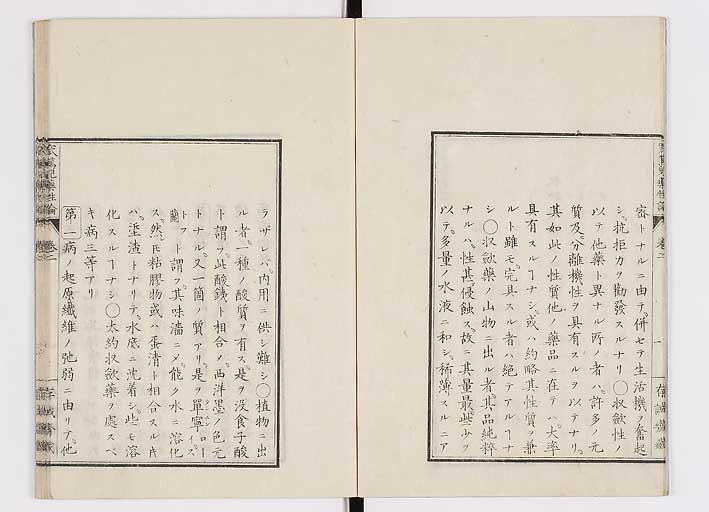 密トナルニ由テ、併セテ生活機ヲ奮起
シ、抗拒力ヲ勸發スルナリ○收斂性ノ
以テ他藥ト異ナル所ノ者ハ、許多ノ元
質及ビ分離機性ヲ具有スルヲ以テナリ、
其如此ノ性質他ノ藥品ニ在テハ、大率
具有スルヿナシ、或ハ約略其性質ヲ兼
ルト雖モ、完具スル者ハ絶テアルヿナ
シ○收斂藥ノ山物ニ出ル者、其品純粹
ナルハ、性甚侵蝕ス、故ニ其量最些少ヲ
以テ、多量ノ水液ニ和シ、稀薄スルニア
ラザレバ、内用ニ供シ難シ○植物ニ出
ル者、一種ノ酸質ヲ有ス、是ヲ沒食子酸
ト謂フ、此酸銕ト相合メ、西洋墨ノ色元
トナル、又一箇ノ質アリ、是ヲ單寧
トフト謂フ、其味濇ニメ、能ク水ニ溶化
ス、然ㇾ𪜈粘膠物或ハ蛋清ト相合スルㇾ𪜈
ハ、渣滓トナリテ、水底ニ沈着シ、些モ溶
化スルヿナシ○大約收斂藥ヲ處スベ
キ病三等アリ
第一病 起原纖維ノ弛弱ニ由リテ、他
卷二
一